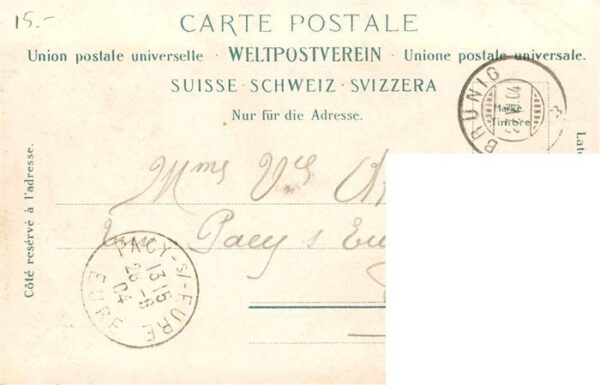 15.-
CARTE POSTALE
Union postale universelle · WELTPOSTVEREIN · Unione postale universale.
SUISSE · SCHWEIZ · SVIZZERA
Nur für die Adresse.
Côté resérvé à l'adresse.
BRUNIG
04
Marke.
Timbre
Mme Vve
Pacy s Eu
PACY-S/-EURE
13 15
26-6
04
EURE